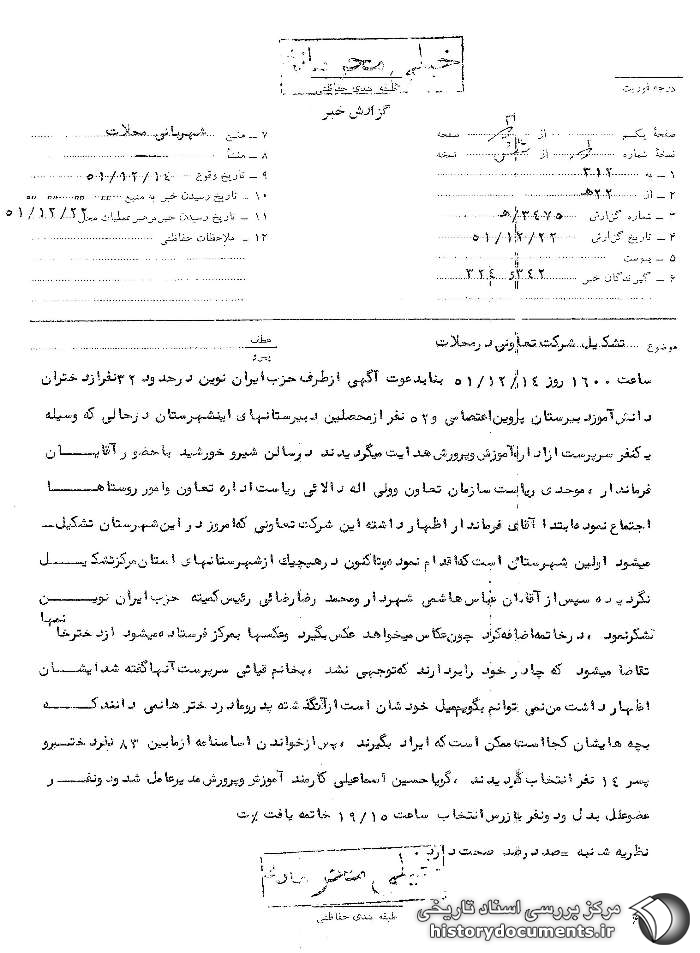 خیلی محرمانه
طبقه بندی حفاظتی
گزارش خبر
درجه فوریت
صفحهٔ یکم از صفحه
نسخهٔ شماره از نسخه
۱ ـ به ۳۱۲
۲ ـ از ۲۲ھ
۳ ـ شماره گزارش ۳۴۷۵/ھ
۴ ـ تاریخ گزارش ۵۱/۱۲/۲۲
۵ ـ پیوست
۶ ـ گیرندگان خبر ۳۴۲ و ۳۲۴
۷ ـ منبع شهربانی محلات
۸ ـ منشأ
۹ ـ تاریخ وقوع ۵۱/۱۲/۱۴
۱۰ ـ تاریخ رسیدن خبر به منبع
۱۱ ـ تاریخ رسیدن خبر برهبر عملیات محل ۵۱/۱۲/۲۲
۱۲ ـ ملاحظات حفاظتی
موضوع تشکیل شرکت تعاونی در محلات
عطف
پیرو
ساعت ۱۶۰۰ روز ۵۱/۱۲/۱۴ بنابدعوت آگهی ازطرف حزب ایران نوین درحدود ۳۲ نفر از دختران
دانش آموز دبیرستان پروین اعتصامی و ۵۲ نفر ازمحصلین دبیرستانهای اینشهرستان درحالی که وسیله
یکنفر سرپرست از اداره آموزش وپرورش هدایت میگردیدند درسالن شیرو خورشید باحضور آقایان
فرماندار ، موحدی ریاست سازمان تعاون وولی اله دالائی ریاست اداره تعاون وامور روستاها
اجتماع نموده ابتدا آقای فرماندار اظهار داشته این شرکت تعاونی که امروز در این شهرستان تشکیل
میشود اولین شهرستان است که اقدام نموده وتاکنون درهیچیک ازشهرستانهای استان مرکز تشکیل
نگردیده سپس از آقایان عباس هاشمی شهردار ومحمد رضا رضائی رئیس کمیته حزب ایران نوین
تشکرنمود ، درخاتمه اضافه کرد چون عکاس میخواهد عکس بگیرد وعکسها بمرکز فرستاده میشود ازدخترخا نمها
تقاضا میشود که چادر خود را بردارند که توجهی نشد ، بخانم قیاثی سرپرست آنها گفته شد ایشان
اظهار داشت من نمی توانم بگویم میل خودشان است ازآنگذشته پدرومادر دخترها نمی دانند که
بچه هایشان کجا است ممکن است که ایراد بگیرند ، پس ازخواندن اساسنامه ازمابین ۸۳ نفر دختر و
پسر ۱۴ نفر انتخاب گردیدند ، گویا حسین اسماعیلی کارمند آموزش وپرورش مدیرعامل شد و دونفر
عضو علی البدل و دونفر بازرس انتخاب ساعت ۱۹/۱۵ خاتمه یافت ٪ت
نظریه شنبه = صددرصد صحت دارد .
خیلی محرمانه
طبقه بندی حفاظتی
مرکز بررسی اسناد تاریخی
historydocuments.ir